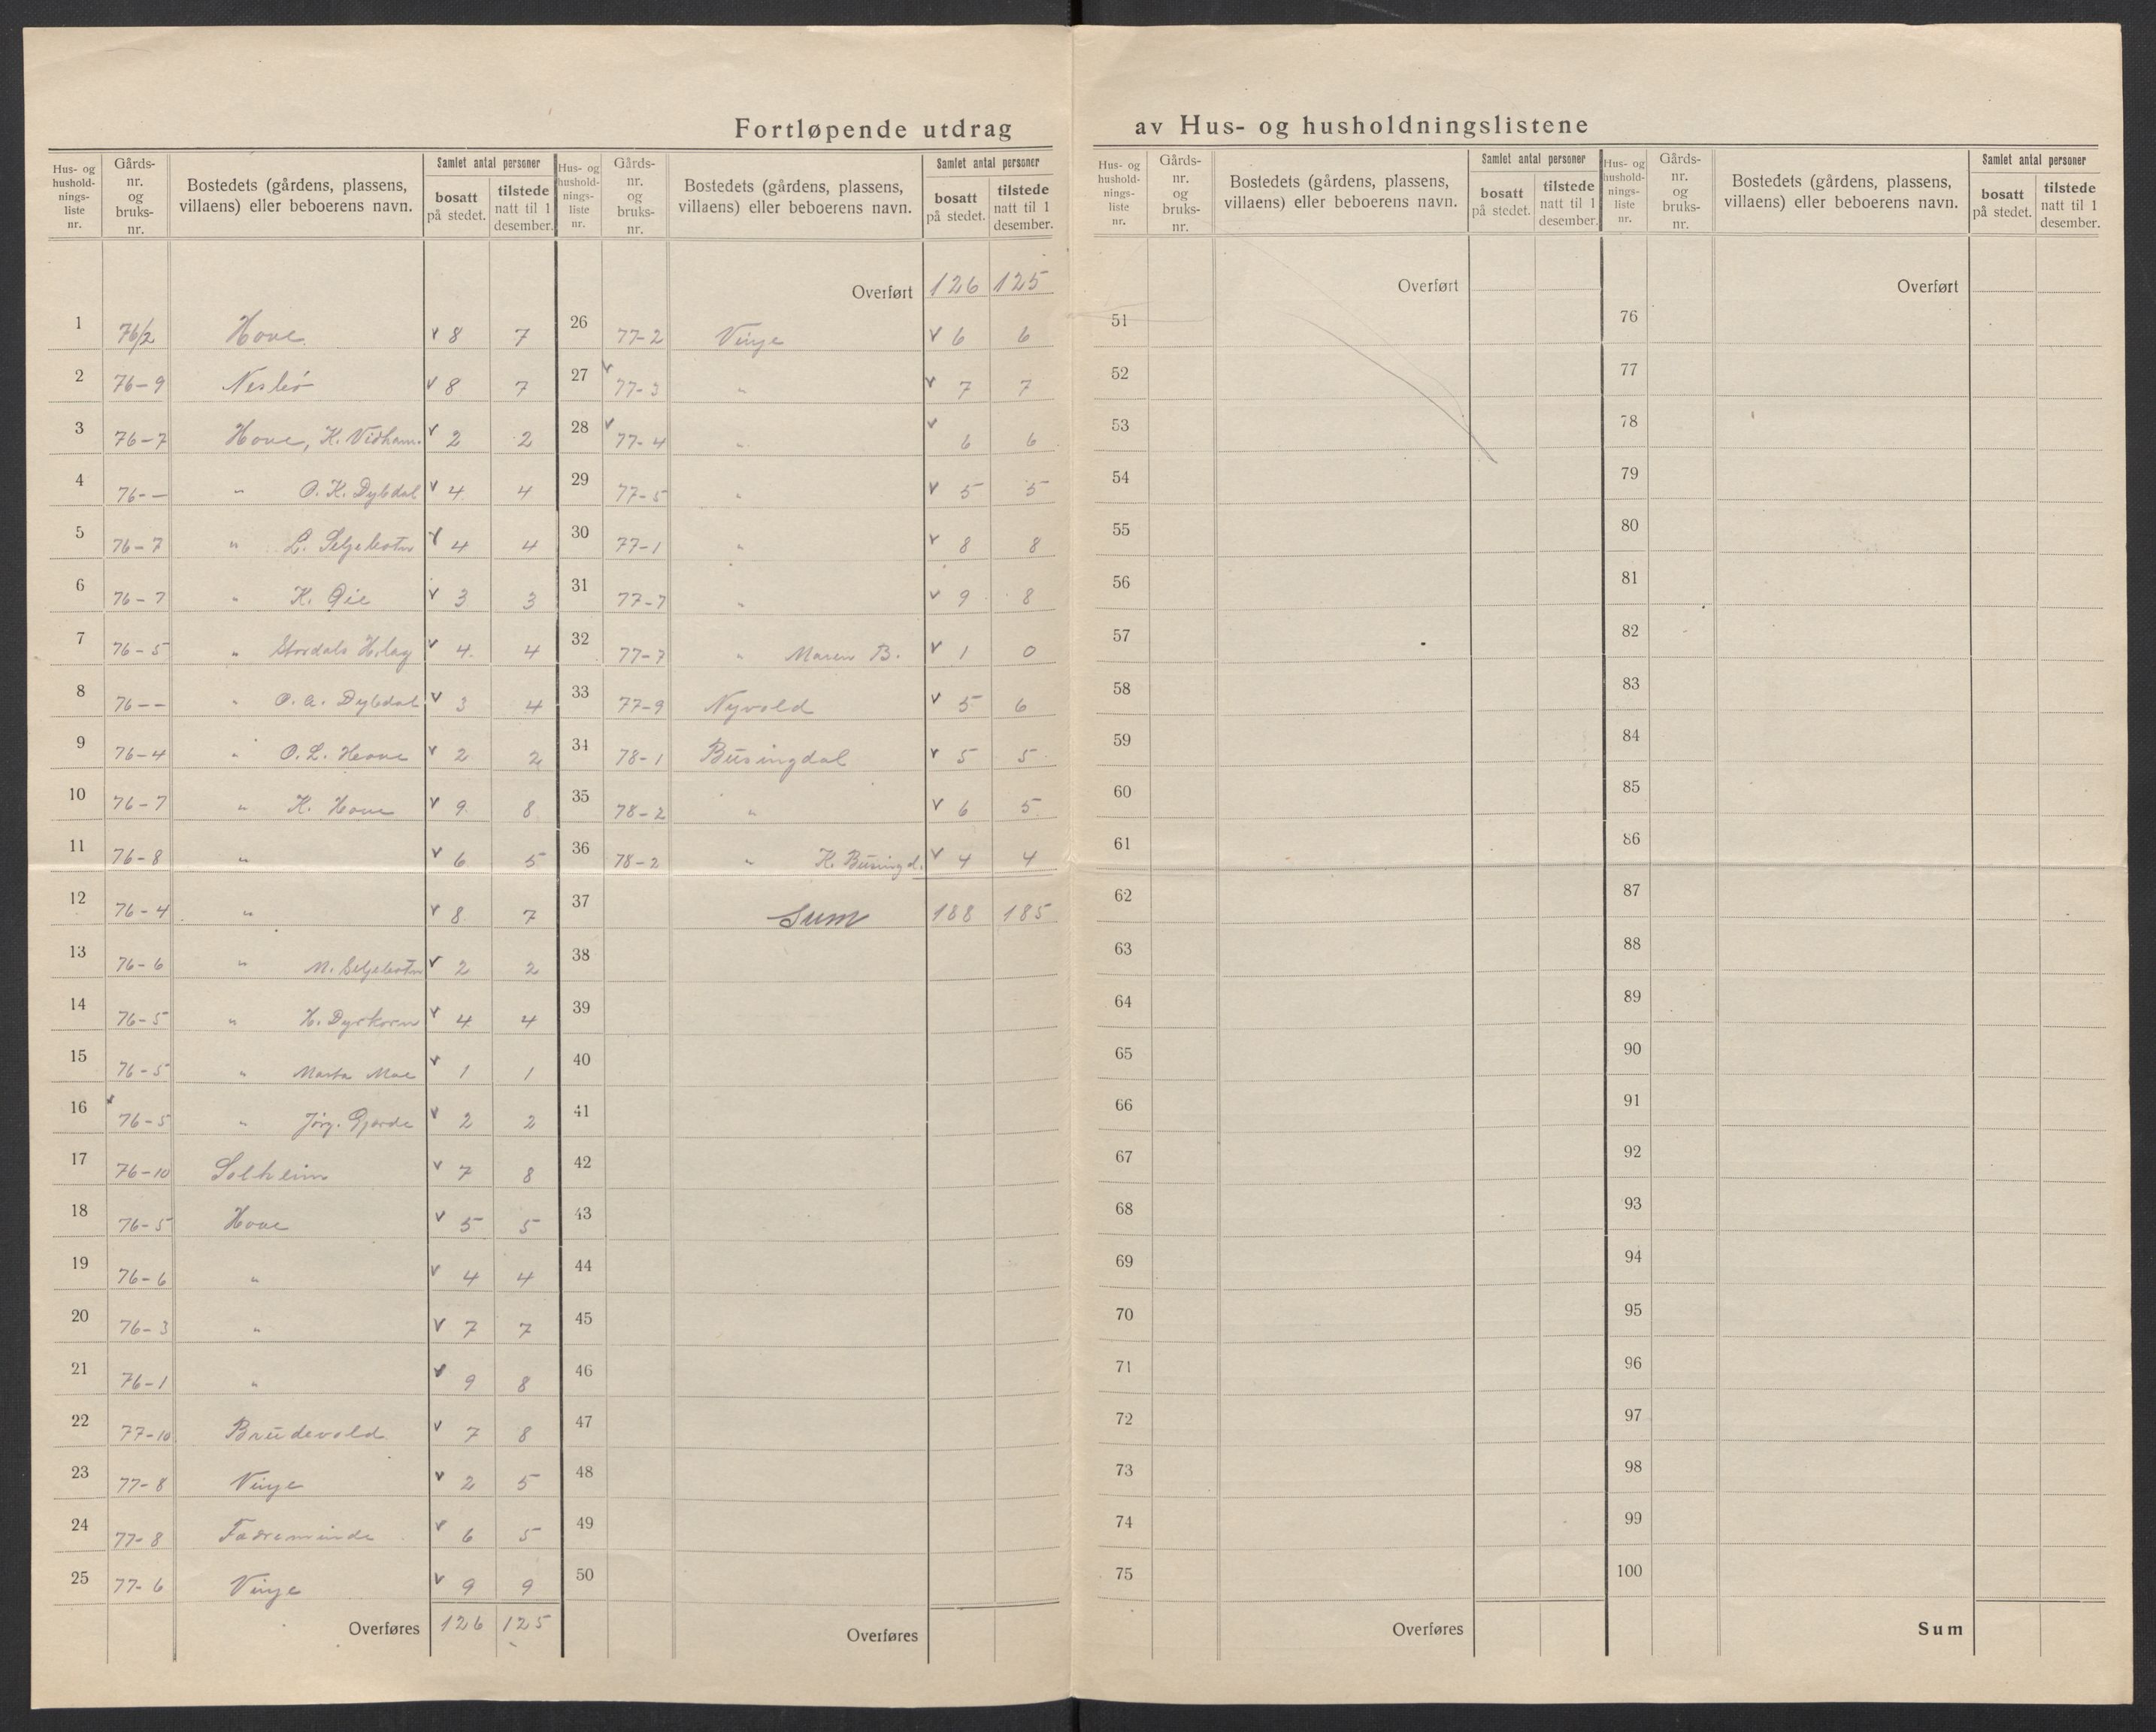 Fortløpende utdrag av Hus- og husholdningslistene
Hus- og hushold-nings-liste nr. | Gårds-nr. og bruks-nr. | Bostedets (gårdens, plassens, villaens) eller beboerens navn. | Samlet antal personer bosatt på stedet. | tilstede natt til 1 desember.
1 76/2 Hove v 8 7
2 76-9 Nesbö v 8 7
3 76-7 Hove, K. Vidham. v 2 2
4 76-— " O. K. Dybdal v 4 4
5 76-7 " L. Seljebotn v 4 4
6 76-7 " K. Øie v 3 3
7 76-5 " Stordals H.lag v 4 4
8 76-— " O. A. Dybdal v 3 4
9 76-4 " O. L. Hove v 2 2
10 76-7 " K. Hove v 9 8
11 76-8 " v 6 5
12 76-4 " v 8 7
13 76-6 " M. Seljebotn v 2 2
14 76-5 " H. Dyrkorn v 4 4
15 76-5 " Marta Moe v 1 1
16 76-5 " Jörg. Gjerde v 2 2
17 76-10 Solheim v 7 8
18 76-5 Hove v 5 5
19 76-6 " v 4 4
20 76-3 " v 7 7
21 76-1 " v 9 8
22 77-10 Brudevold v 7 8
23 77-8 Vinje v 2 5
24 77-8 Fædreminde v 6 5
25 77-6 Vinje v 9 9
Overføres 126 125
Hus- og hushold-nings-liste nr. | Gårds-nr. og bruks-nr. | Bostedets (gårdens, plassens, villaens) eller beboerens navn. | Samlet antal personer bosatt på stedet. | tilstede natt til 1 desember.
Overført 126 125
26 77-2 Vinje v 6 6
27 v 77-3 " v 7 7
28 v 77-4 " v 6 6
29 77-5 " v 5 5
30 77-1 " v 8 8
31 77-7 " v 9 8
32 77-7 " Maren B. v 1 0
33 77-9 Nyvold v 5 6
34 78-1 Busingdal v 5 5
35 78-2 " v 6 5
36 78-2 " K. Busingd. v 4 4
37 Sum 188 185
38
39
40
41
42
43
44
45
46
47
48
49
50
Overføres
Hus- og hushold-nings-liste nr. | Gårds-nr. og bruks-nr. | Bostedets (gårdens, plassens, villaens) eller beboerens navn. | Samlet antal personer bosatt på stedet. | tilstede natt til 1 desember.
Overført
51
52
53
54
55
56
57
58
59
60
61
62
63
64
65
66
67
68
69
70
71
72
73
74
75
Overføres
Hus- og hushold-nings-liste nr. | Gårds-nr. og bruks-nr. | Bostedets (gårdens, plassens, villaens) eller beboerens navn. | Samlet antal personer bosatt på stedet. | tilstede natt til 1 desember.
Overført
76
77
78
79
80
81
82
83
84
85
86
87
88
89
90
91
92
93
94
95
96
97
98
99
100
Sum